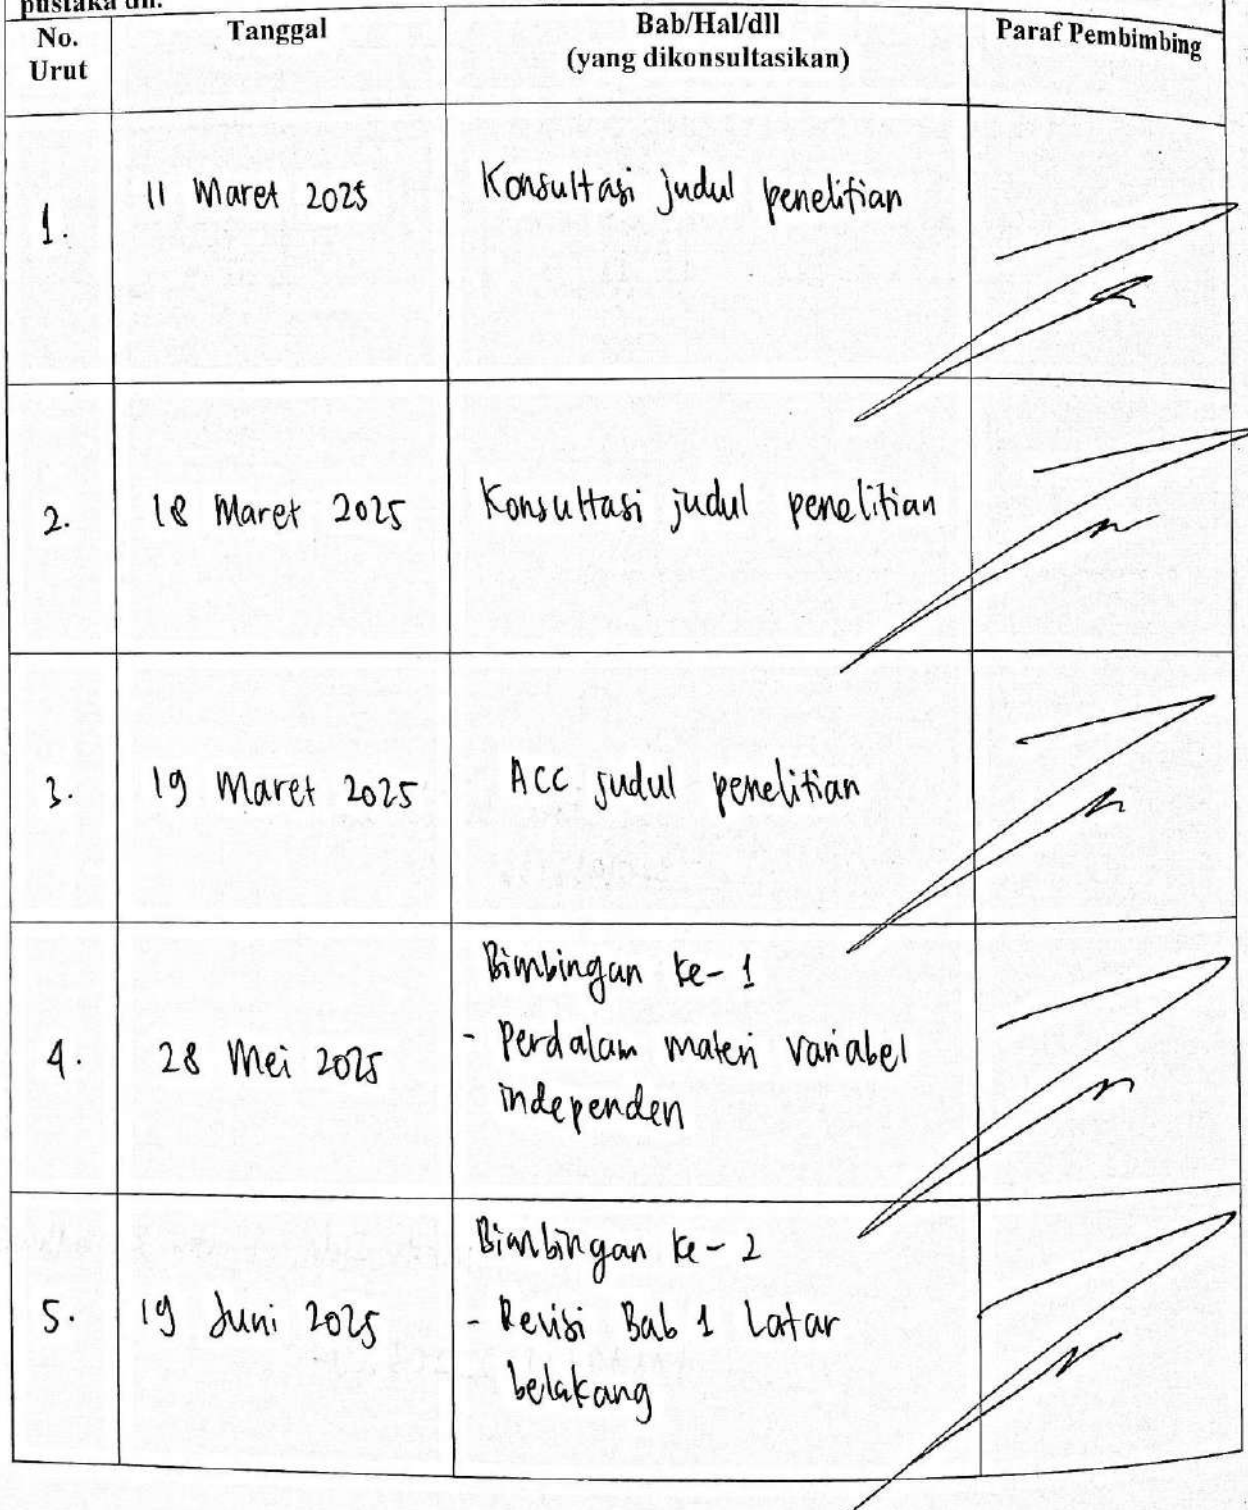 pustaka dll.
No. Urut
Tanggal
Bab/Hal/dll
(yang dikonsultasikan)
Paraf Pembimbing
1.
11 Maret 2025
Konsultasi judul penelitian
2.
18 Maret 2025
Konsultasi judul penelitian
3.
19 Maret 2025
ACC judul penelitian
4.
28 Mei 2025
Bimbingan ke-1
- Perdalam materi variabel
independen
5.
19 Juni 2025
Bimbingan ke-2
- Revisi Bab 1 Latar
belakang